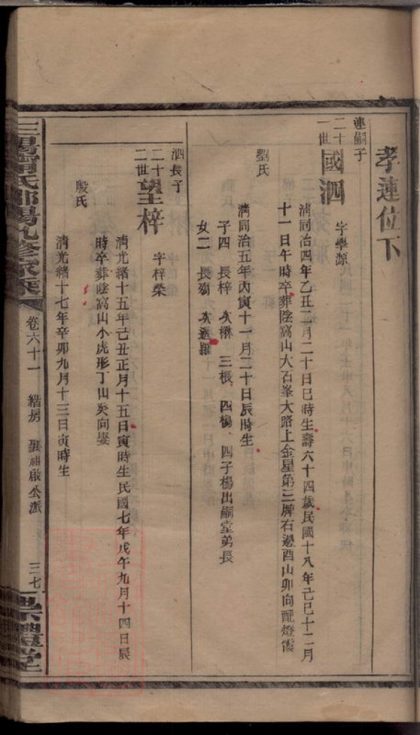 孝連位下
連嗣子
二十一世
國泗
字學源
清同治四年乙丑二月二十日巳時生壽六十四歲民國十八年己巳十二月
十一日午時卒葬陰窩山大石峯大路上金星第三牌石邊酉山卯向
劉氏
清同治五年丙寅十一月二十日辰時生
子四 長梓 次 三根 四楊 四子楊出嗣堂弟長
女二 長 次適羅
泗長子
二十二世
望梓
字梓榮
清光緒十五年己丑正月十五日寅時生民國七年戊午九月十四日辰
時卒葬陰窩山小虎形丁山癸向
殷氏
清光緒十七年辛卯九月十三日寅時生
卷六十一
三七